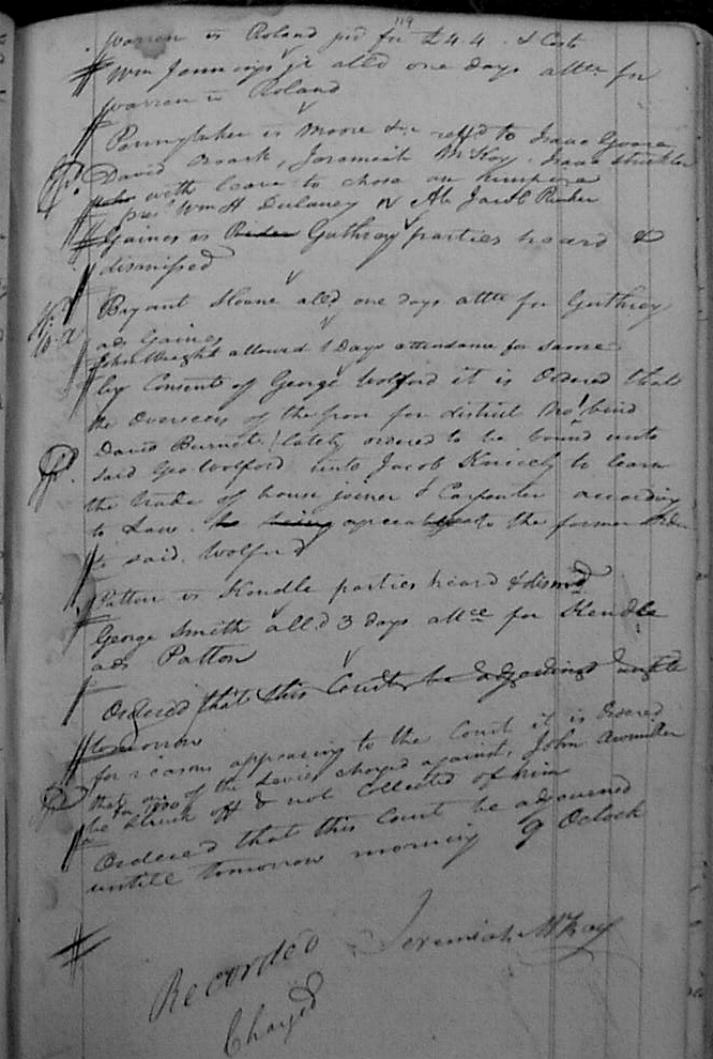 119
Warren vs Roland jud for £4.4. & Costs
Wm Jennings jr alld one days attce for
Warren vs Roland
Pennybaker vs Moore &c refd to Isaac
David Roark, Jeremiah McKoy. Isaac Strickler
with leave to chose an umpire
pres Wm H Dulaney Ab Jacob
Gaines vs Rider Guthrey parties heard &
dismissed
Bryant Sloane alld one days attce for Guthrey
ads Gaines
John Wright allowed 1 Days attendance for same
by Consent of George Wolford it is Ordered that
the Overseers of the poor for district No 1 bind
David Burnet lately ordered to be bound unto
said Geo Wolford unto Jacob Knicely to learn
the trade of house joiner & Carpenter according
to Law. to being agreeable to the former order
to said Wolford
Patton vs Kendle parties heard & dismd
George Smith alld 3 days attce for Kendle
ads Patton
Ordered that this Court be adjourned untill
tomorrow
for reasons appearing to the Court it is Ordered
that one of the Levies charged against John
be struck off & not Collected of him
Ordered that this Court be adjourned
untill tomorrow morning 9 Oclock
Jeremiah McKoy
Recorded
Chargd